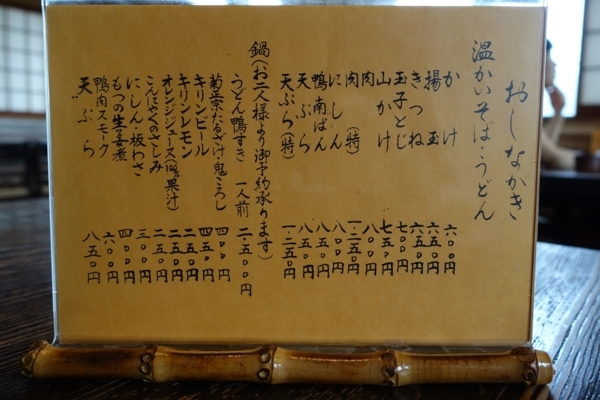 おしながき
温かいそば・うどん
かけ 六〇〇円
揚玉 六五〇円
きつね 六五〇円
玉子とじ 七〇〇円
山かけ 七五〇円
肉 八〇〇円
肉(特) 一、二五〇円
にしん 八〇〇円
鴨南ばん 八五〇円
天ぷら 八五〇円
天ぷら(特) 一、二五〇円
鍋(お二人様より御予約承ります)
うどん鴨すき 一人前 二、五〇〇円
菊正宗たるざけ・鬼ころし 四〇〇円
キリンビール 四五〇円
キリンレモン 二五〇円
オレンジジュース(100%果汁) 二五〇円
こんにゃくのさしみ 二五〇円
にしん・板わさ 三〇〇円
もつの生姜煮 四〇〇円
鴨肉スモーク 六〇〇円
天ぷら 八五〇円